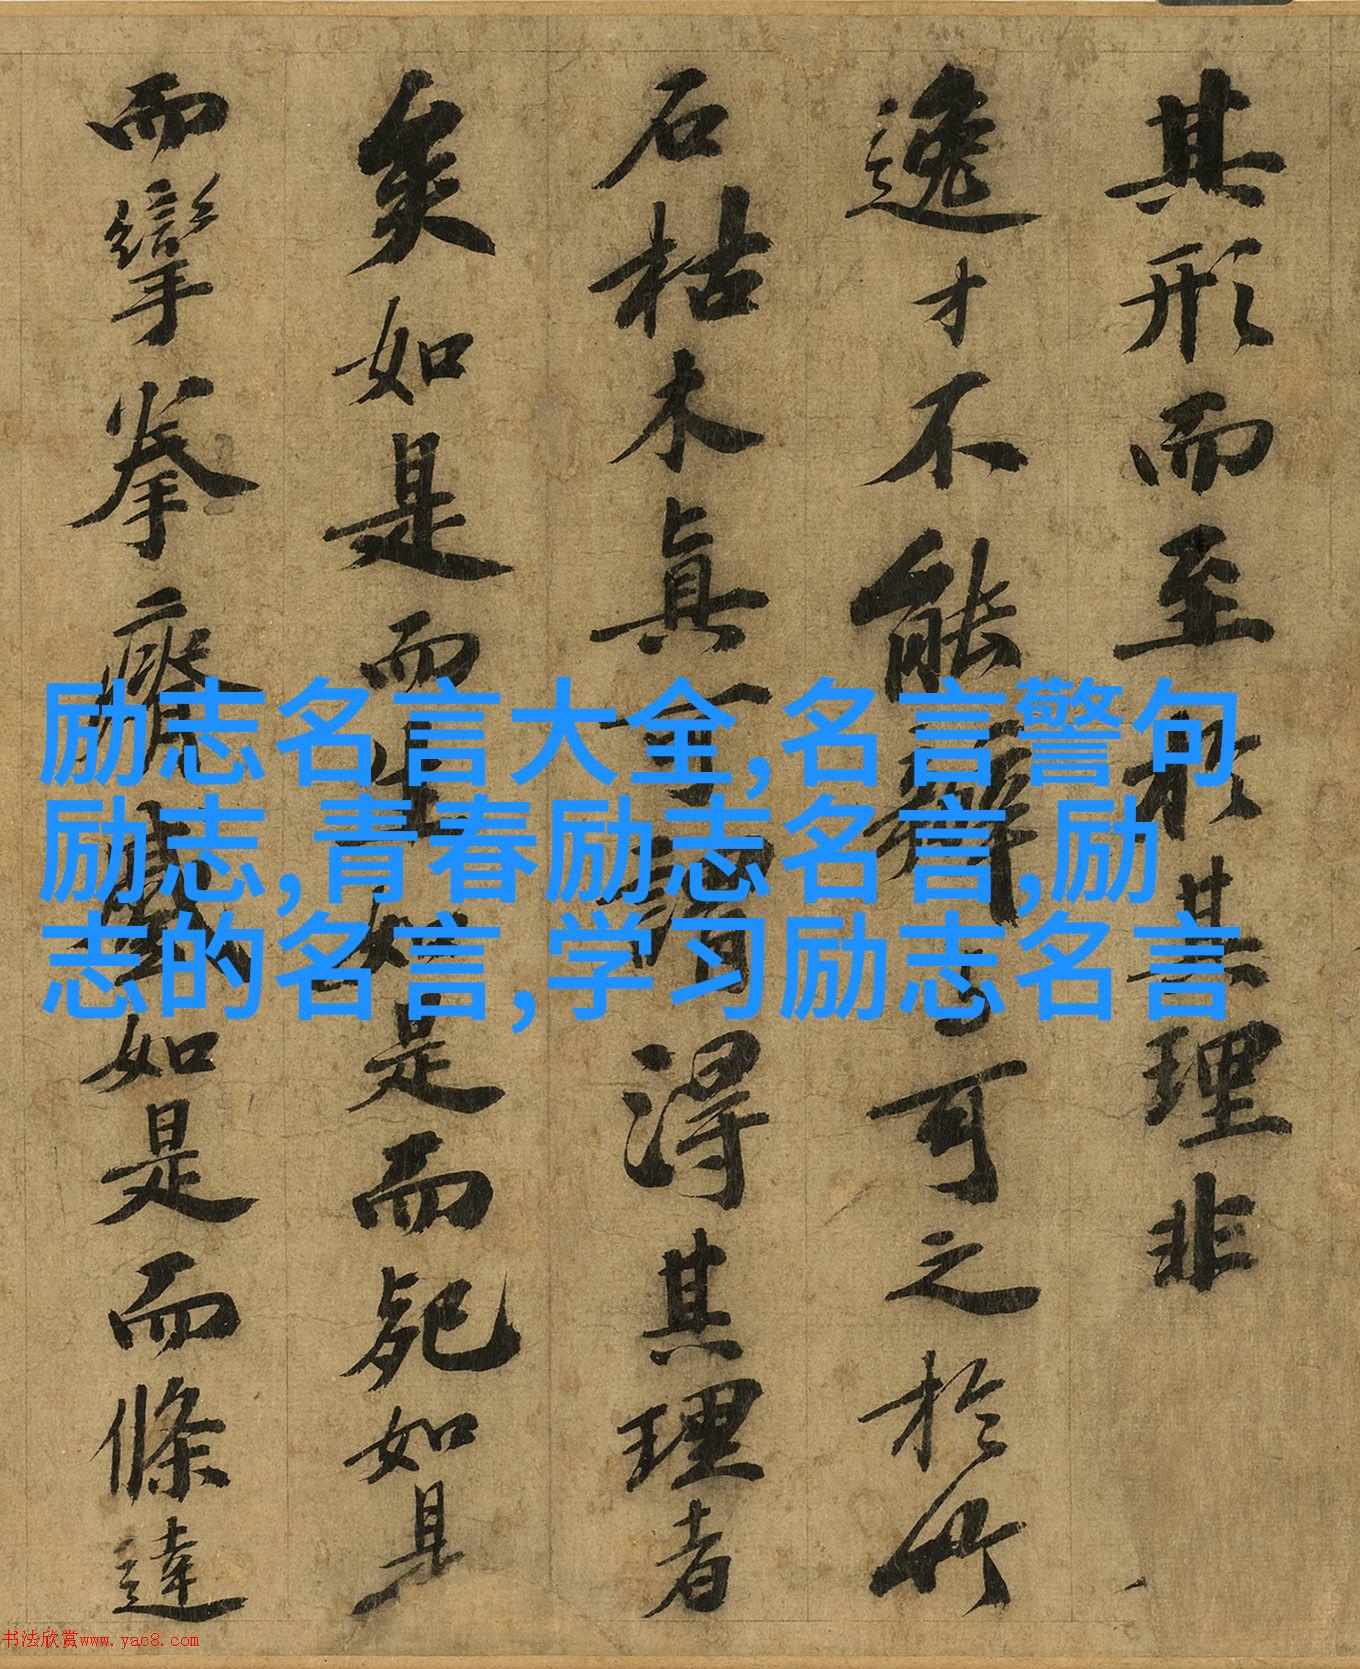 其形而至於其理非
逸才不能辨可之於竹
石枯木真可謂得其理者
矣如是而生如是而死如是
而攣拳瘠蹙如是而條達
励志名言大全,名言警句
励志,青春励志名言,励
志的名言,学习励志名言
书法欣赏www.yac8.com